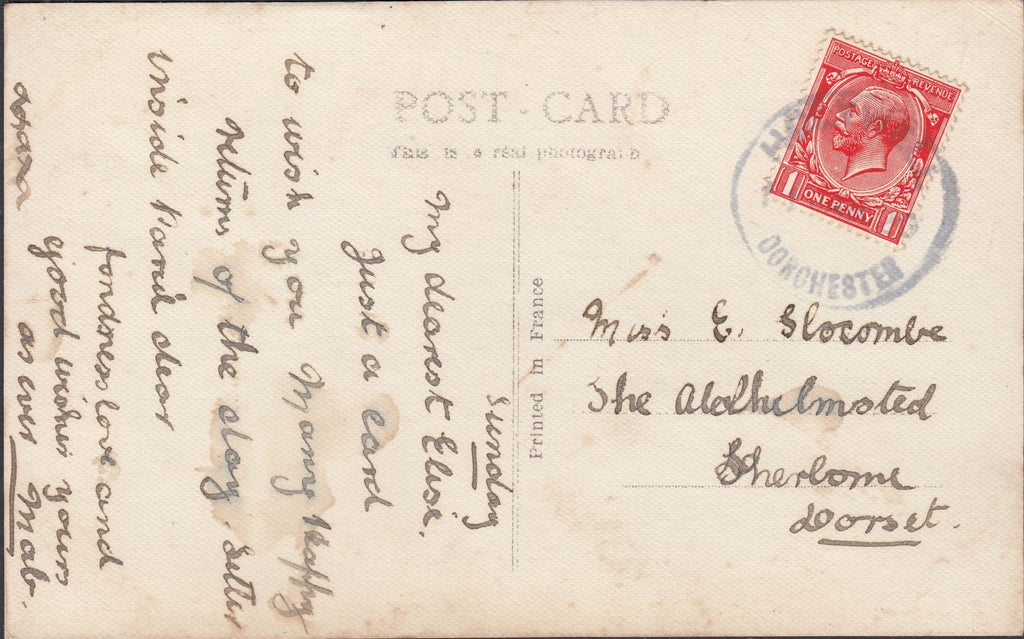 POST - CARD
This is a real photograph
Printed in France
POSTAGE REVENUE
1 ONE PENNY 1
DORCHESTER
Miss E. Slocombe
The Aldhulmsted
Sherborne
Dorset.
Sunday
My dearest Elise.
Just a card
to wish you Many Happy
returns of the day. Letter
inside Parid dear
fondness love and
good wishes yours
as ever Mab.